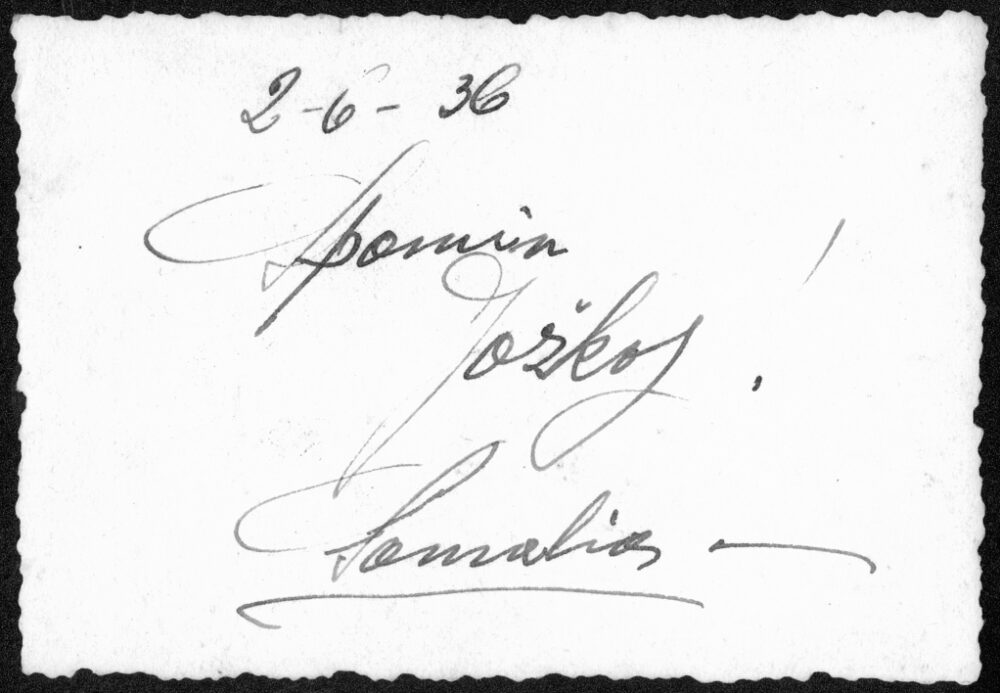 2-6-36
Spomin
Joškoj !
Somalia —